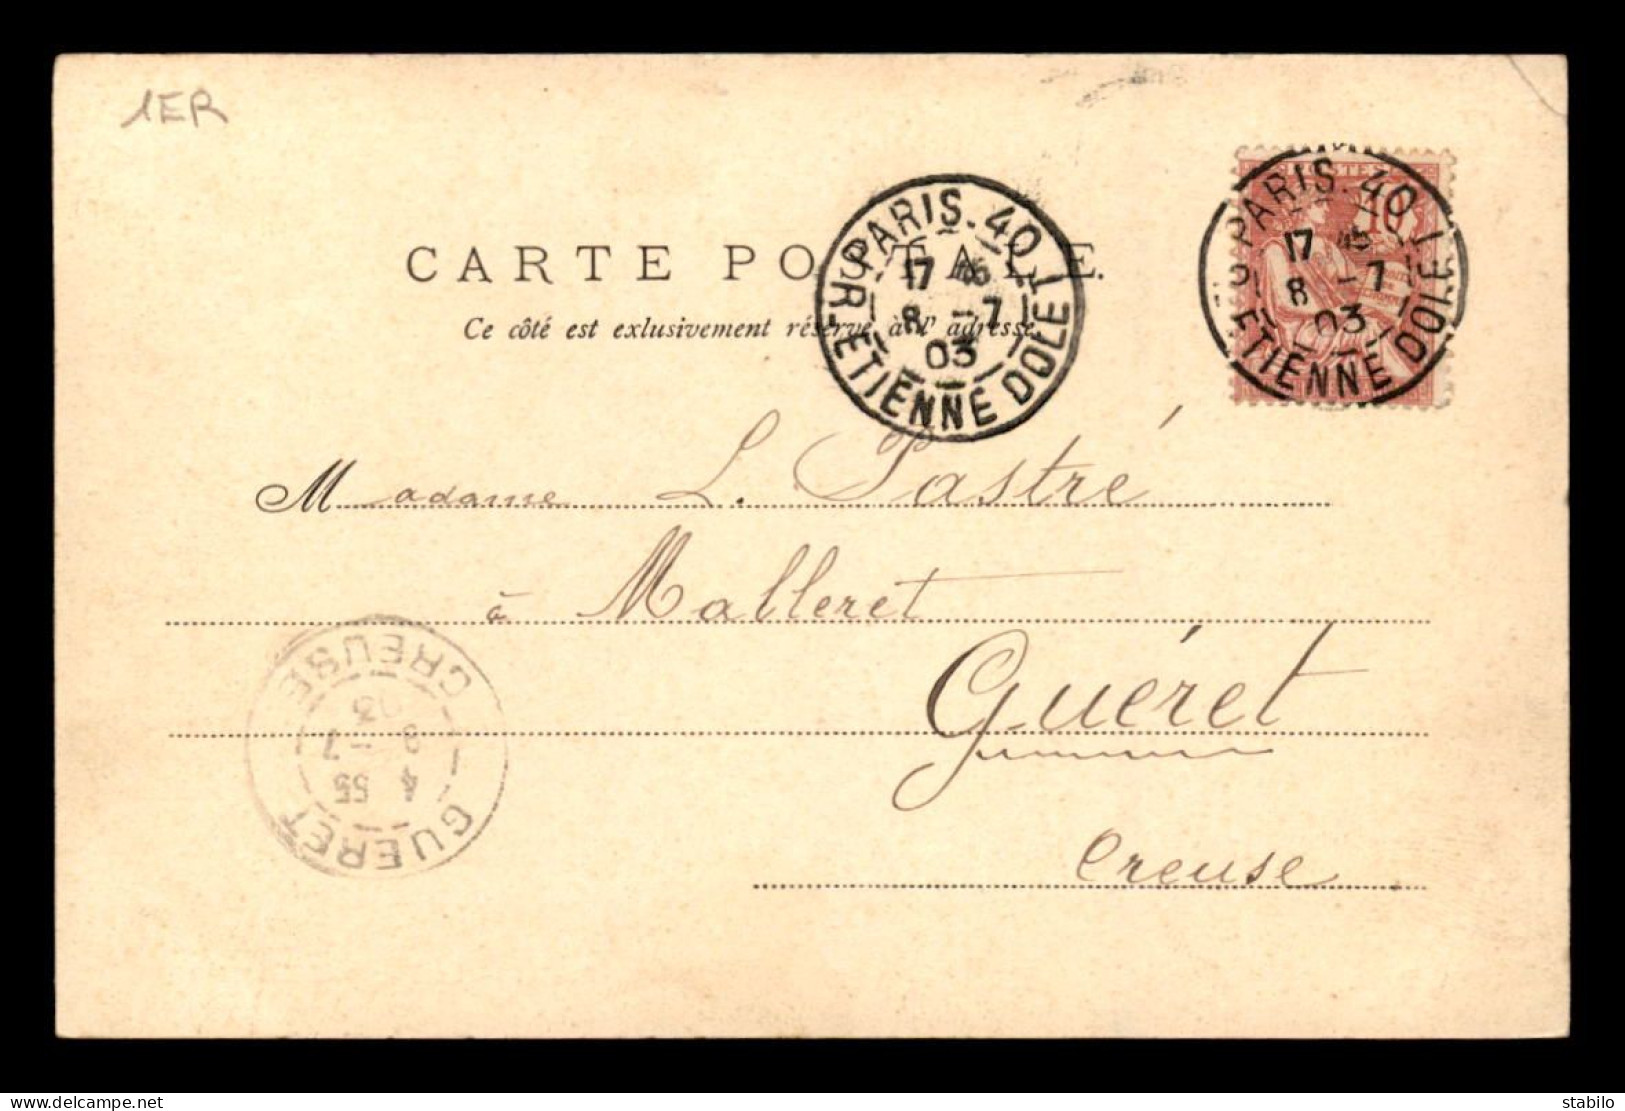 1ER
CARTE POSTALE.
Ce côté est exlusivement réservé à l'adresse
PARIS. 40
17 45
8 - 7
03
R. ETIENNE DOLET
POSTES
10
PARIS. 40
17 45
8 - 7
03
R. ETIENNE DOLET
Madame L. Pastré
à Malleret
Guéret
Creuse
GUERET
4 55
9 - 7
03
CREUSE
delcampe.net
stabilo